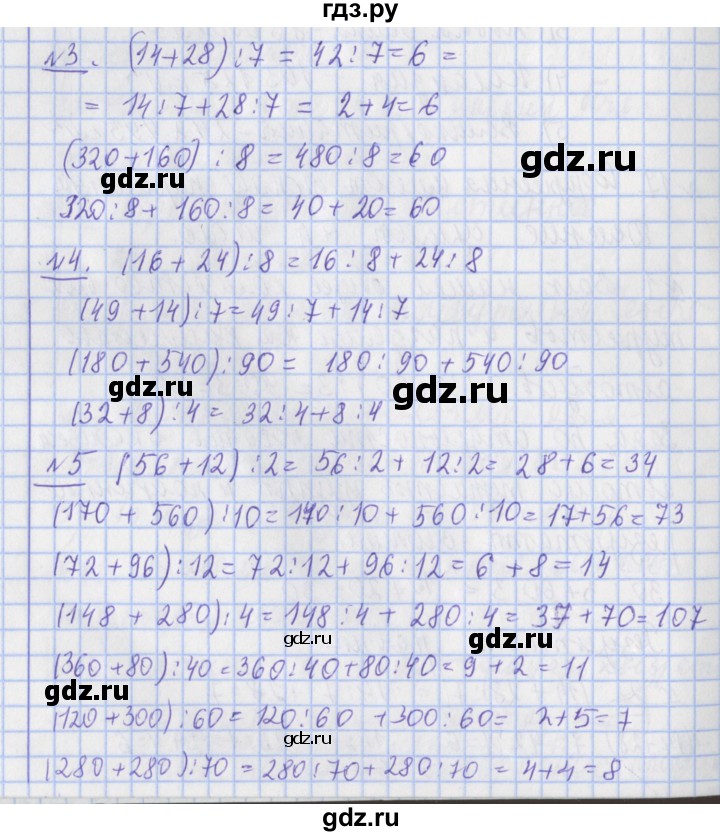 гдз.ру
№3. (14+28):7 = 42:7=6 =
= 14:7+28:7 = 2+4=6
(320+160) : 8 = 480:8=60
gdz.ru
gdz.ru
320:8+ 160:8= 40+20=60
№4. (16+24):8=16:8+24:8
(49+14):7=49:7+14:7
(180+540):90= 180:90+540:90
gdz.ru
gdz.ru
(32+8):4= 32:4+8:4
№5 (56+12):2= 56:2+ 12:2= 28+6=34
(170+ 560):10=170:10+ 560:10=17+56=73
(72+96):12=72:12+ 96:12=6 +8=14
(148 + 280):4=148:4+ 280:4=37+70=107
gdz.ru
gdz.ru
(360+80):40=360:40+80:40=9+2=11
gdz.ru
(120+300):60=120:60 +300:60= 2+5=7
gdz.ru
(280+280):70 =280:70+280:70 =4+4=8
gdz.ru